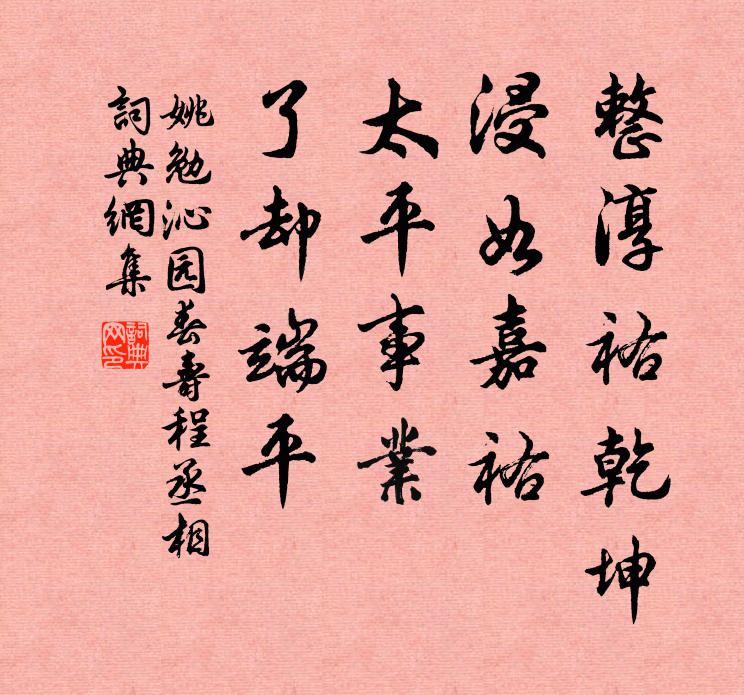 整淳祐乾坤
浸如嘉祐
太平事業
了却端平
姚勉沁园春寿程丞相
詞典網集
詞典
网印